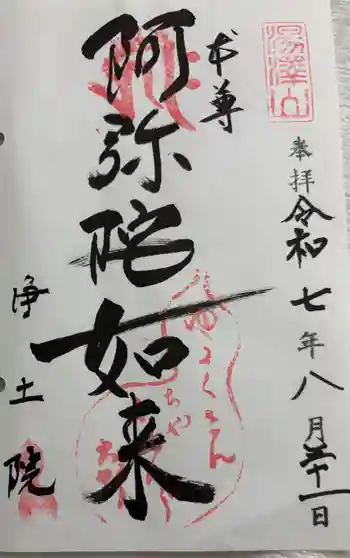 湯澤山
奉拝
令和七年八月三十一日
本尊
阿弥陀如来
浄土院